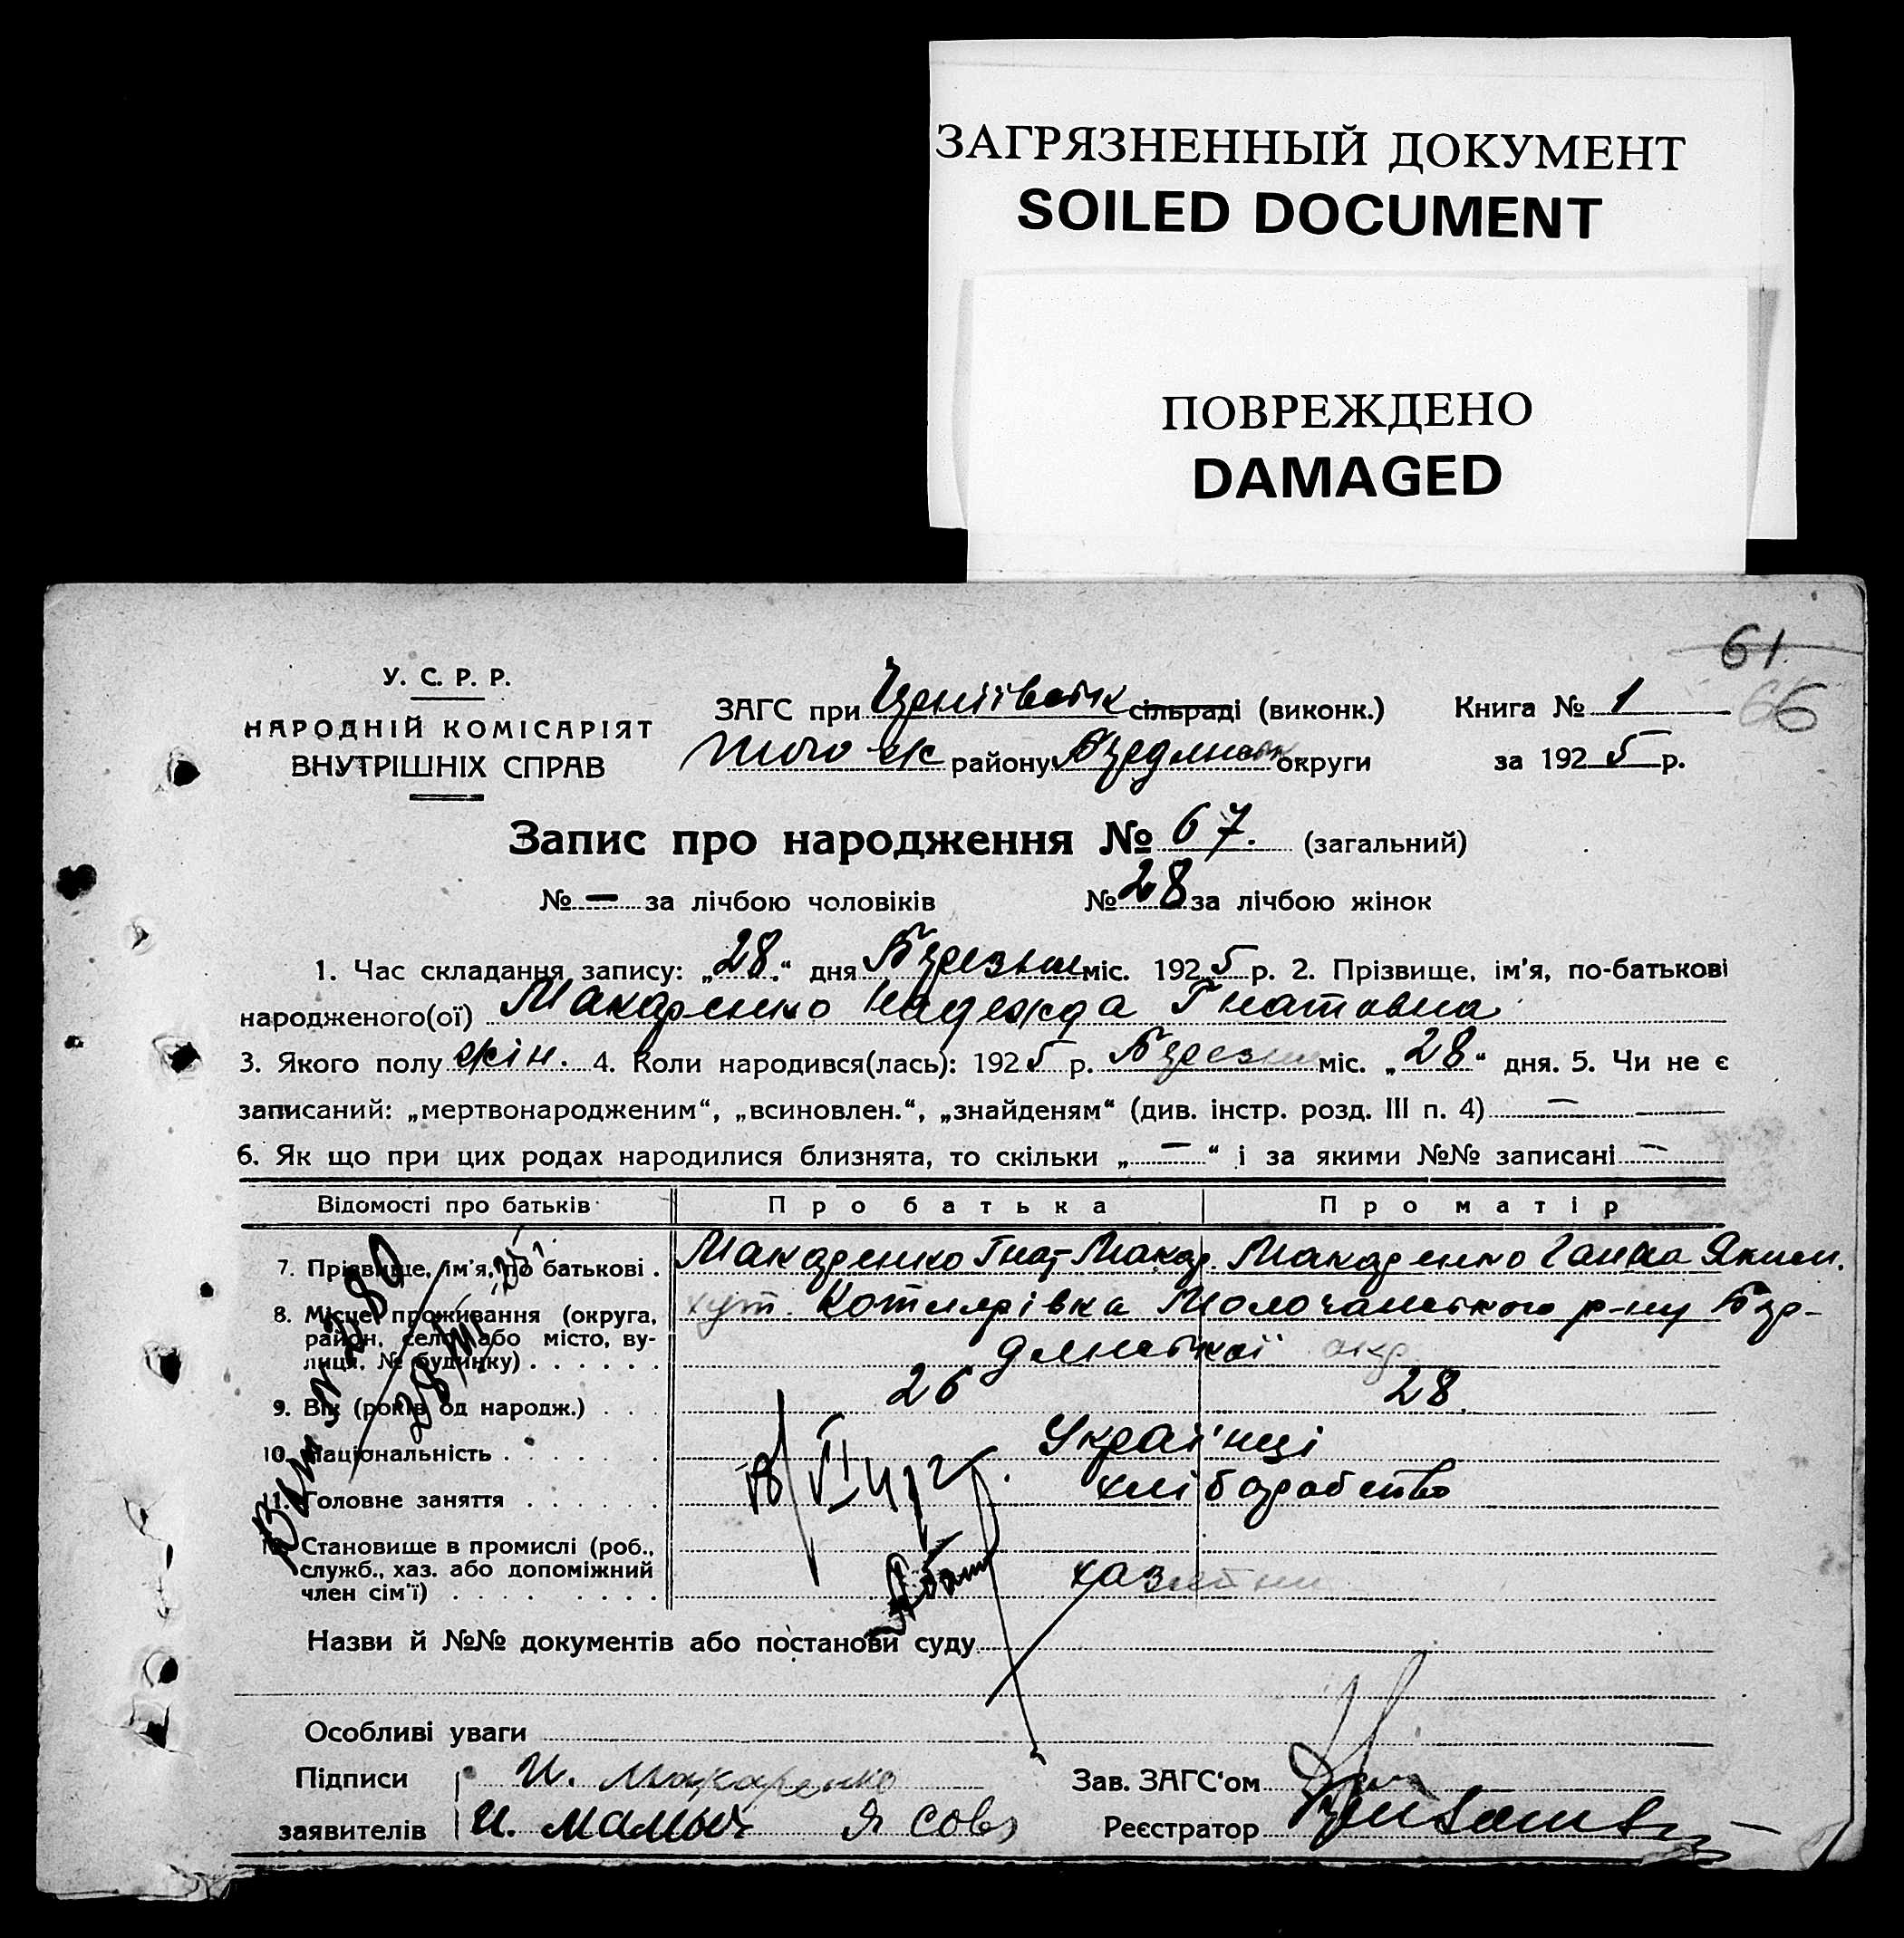 ЗАГРЯЗНЕННЫЙ ДОКУМЕНТ
SOILED DOCUMENT
ПОВРЕЖДЕНО
DAMAGED
61.
66
У. С. Р. Р.
НАРОДНІЙ КОМІСАРІЯТ
ВНУТРІШНІХ СПРАВ
ЗАГС при сільраді (виконк.) Книга № 1
району округи за 1925 р.
Запис про народження № 67. (загальний)
№ — за лічбою чоловіків № 28 за лічбою жінок
1. Час складання запису: „28.“ дня Березня міс. 1925 р. 2. Прізвище, ім'я, по-батькові
народженого(ої) Макаренко Надежда Гнатовна
3. Якого полу жін. 4. Коли народився(лась): 1925 р. Березня міс. „28“ дня. 5. Чи не є
записаний: „мертвонародженим“, „всиновлен.“, „знайденям“ (див. інстр. розд. III п. 4) —
6. Як що при цих родах народилися близнята, то скільки „—“ і за якими №№ записані —
Відомості про батьків Про батька Про матір
7. Прізвище, ім'я, по батькові . Макаренко Гнат Макар. Макаренко Ганна Яким.
8. Місце проживання (округа, хут. Котлярівка Молочанського р-ну Бер-
район, село або місто, ву-
лиця, № будинку) . . . . . . дянської окр
9. Вік (років од народж.) . . . 26 28.
10. Національність . . . . . . Українці
11. Головне заняття . . . . . . хліборобство
Становище в промислі (роб.,
служб., хаз. або допоміжний
член сім'ї) . . . . . . . . хазяєтни
Назви й №№ документів або постанови суду
Особливі уваги
Підписи И. Макаренко Зав. ЗАГС'ом
заявителів И. Реєстратор